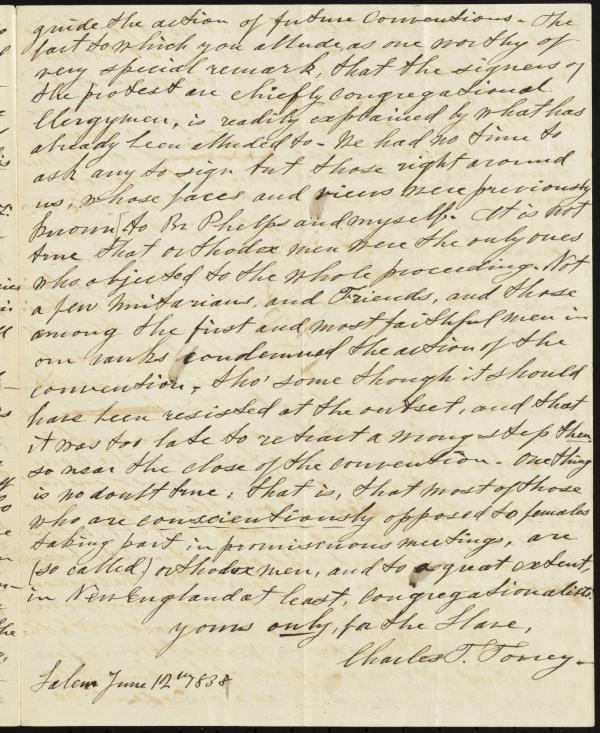 guide the action of future Conventions. The
fact to which you allude, as one worthy of
very special remark, that the signers of
the protest are chiefly congregational
Clergymen, is readily explained by what has
already been alluded to - We had no time to
ask any to sign but those right around
us, whose faces and views were previously
known to Br Phelps and myself. It is not
true that orthodox men were the only ones
who objected to the whole proceeding. Not
a few Unitarians, and Friends, and those
among the first and most faithful men in
our ranks condemned the action of the
convention, tho' some thought it should
have been resisted at the outset, and that
it was too late to retract a wrong step then
so near the close of the convention - One thing
is no doubt true; that is, that most of those
who are conscientiously opposed to females
taking part in promiscuous meetings, are
(so called,) orthodox men, and to a great extent,
in New England at least, Congregationalists.
yours only, for the Slave,
Charles T. Torrey -
Salem June 12th 1838